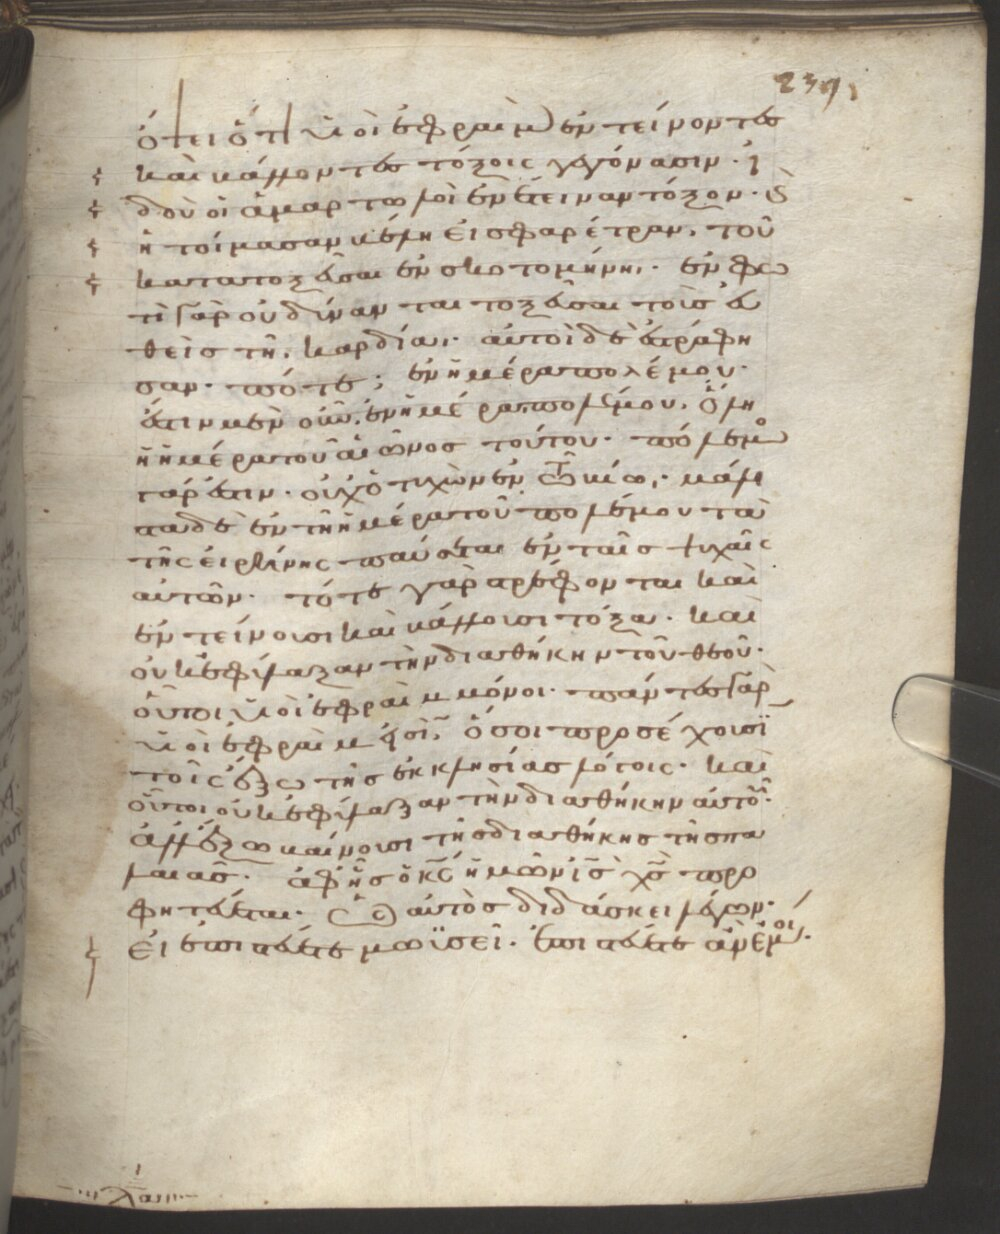 239
ὄψει ὅτι υἱοὶ ἐφραὶμ ἐντείνοντες
καὶ βάλλοντες τόξοις γεγόνασιν. ἰ
δοὺ οἱ ἁμαρτωλοὶ ἐνέτειναν τόξον.
ἡτοίμασαν βέλη εἰς φαρέτραν, τοῦ
κατατοξεῦσαι ἐν σκοτομήνη. ἐν φω
τὶ γὰρ οὐ δύνανται τοξεῦσαι τοῖς εὐ
θεῖς τῆ καρδία. αὐτοὶ δὲ ἐστράφη
σαν. πότε; ἐν ἡμέρα πολέμου.
ἔστιν μὲν οὖν ἐν ἡμέρα πολέμου, ὅλη
ἡ ἡμέρα τοῦ αἰῶνος τούτου. πόλεμος
γάρ ἐστιν. οὐχ ὁ τυχὼν ἐν τῶ βίω. μάλι
στα δὲ ἐν τῆ ἡμέρα τοῦ πολέμου τὰ
τῆς εἰρήνης παύεται ἐν ταῖς ψυχαῖς
αὐτῶν. τότε γὰρ στρέφονται καὶ
ἐντείνουσι καὶ βάλλουσι τόξα. καὶ
οὐκ ἐφύλαξαν τὴν διαθήκην τοῦ θεοῦ.
οὗτοι υἱοὶ ἐφραὶμ μόνοι. πάντες γὰρ
υἱοὶ ἐφραίμ εἰσιν, ὅσοι προσέχουσι
τοῖς ἔξω τῆς ἐκκλησίας λόγοις. καὶ
οὗτοι οὐκ ἐφύλαξαν τὴν διαθήκην αὐτοῦ.
ἀλλ' ἔξω βαίνουσι τῆς διαθήκης τῆς πα
λαιᾶς. ἀφ' ἧς ὁ κς ἡμῶν ις χς προ
φητεύεται. αὐτὸς διδάσκει λέγων.
εἰ ἐπιστεύετε μωϋσεῖ. ἐπιστεύετε ἂν ἐμοί.